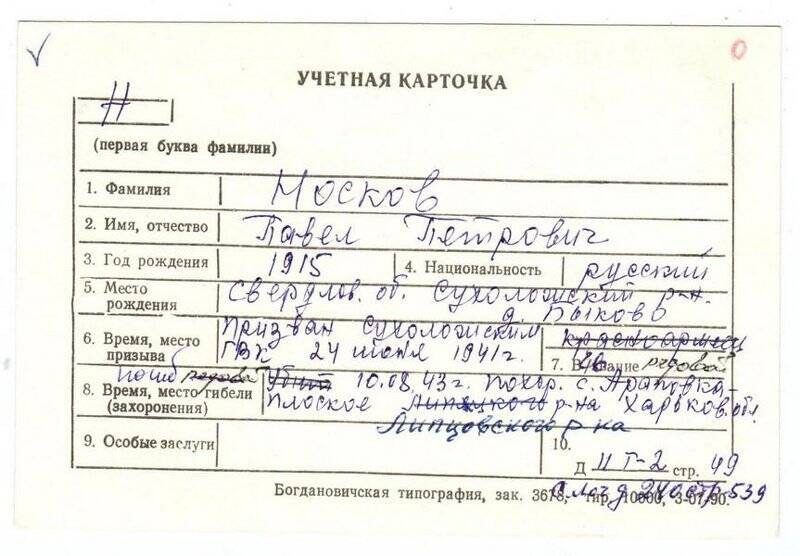 УЧЕТНАЯ КАРТОЧКА
Н
(первая буква фамилии)
1. Фамилия Носков
2. Имя, отчество Павел Петрович
3. Год рождения 1915 4. Национальность русский
5. Место рождения Свердлов. об. Сухоложский р-н.
д. Быково
6. Время, место призыва Призван Сухоложским
ГВК 24 июня 1941г.
красноармеец
7. Звание рядовой
погиб рядовой
8. Время, место гибели (захоронения) Убит 10.08.43г. похор. с. Араповка-
Плоское р-на Харьков. обл.
Липцовского р-на
9. Особые заслуги
10.
Д II Т-2 стр. 49
д 240 стр 539
Богдановичская типография, зак. 3678, тир. 10000, 3-01-90.